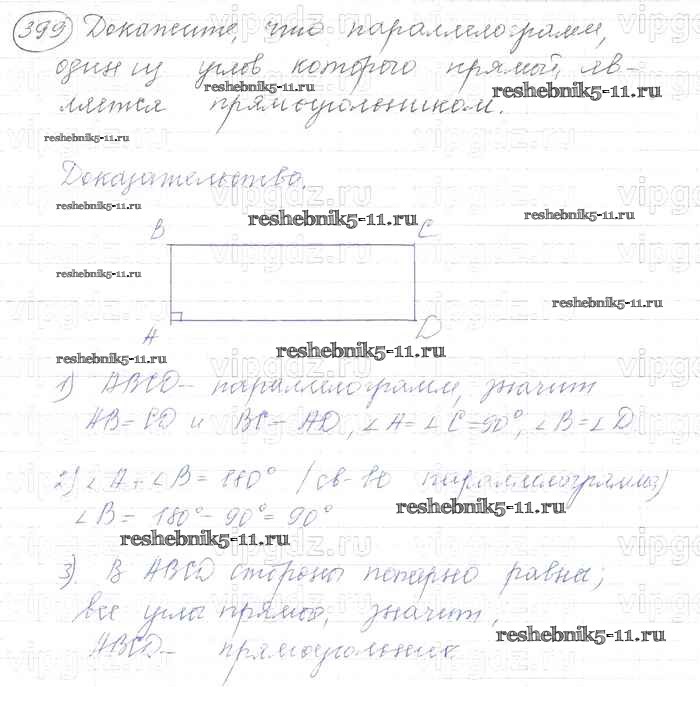 399 Докажите, что параллелограмм,
один из углов которого прямой, яв-
reshebnik5-11.ru reshebnik5-11.ru
ляется прямоугольником.
reshebnik5-11.ru
Доказательство.
reshebnik5-11.ru reshebnik5-11.ru reshebnik5-11.ru
B C
reshebnik5-11.ru
reshebnik5-11.ru
A D
reshebnik5-11.ru reshebnik5-11.ru
1) ABCD – параллелограмм, значит
AB = CD и BC = AD, ∠A = ∠C = 90°, ∠B = ∠D
2) ∠A + ∠B = 180° (св-во параллелограмма)
reshebnik5-11.ru
∠B = 180° – 90° = 90°
reshebnik5-11.ru
3) В ABCD стороны попарно равны,
все углы прямые, значит,
reshebnik5-11.ru
ABCD – прямоугольник.
vipgdz.ru